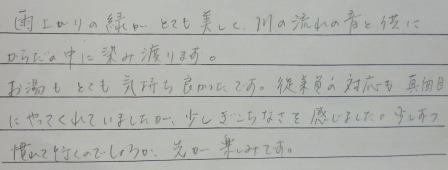 雨上がりの緑がとても美しく、川の流れの音と供に
からだの中に染み渡ります。
お湯もとても気持ち良かったです。従業員の対応も真面目
にやってくれていましたが、少しぎこちなさを感じました。少しずつ
慣れて行くのでしょうが、先が楽しみです。